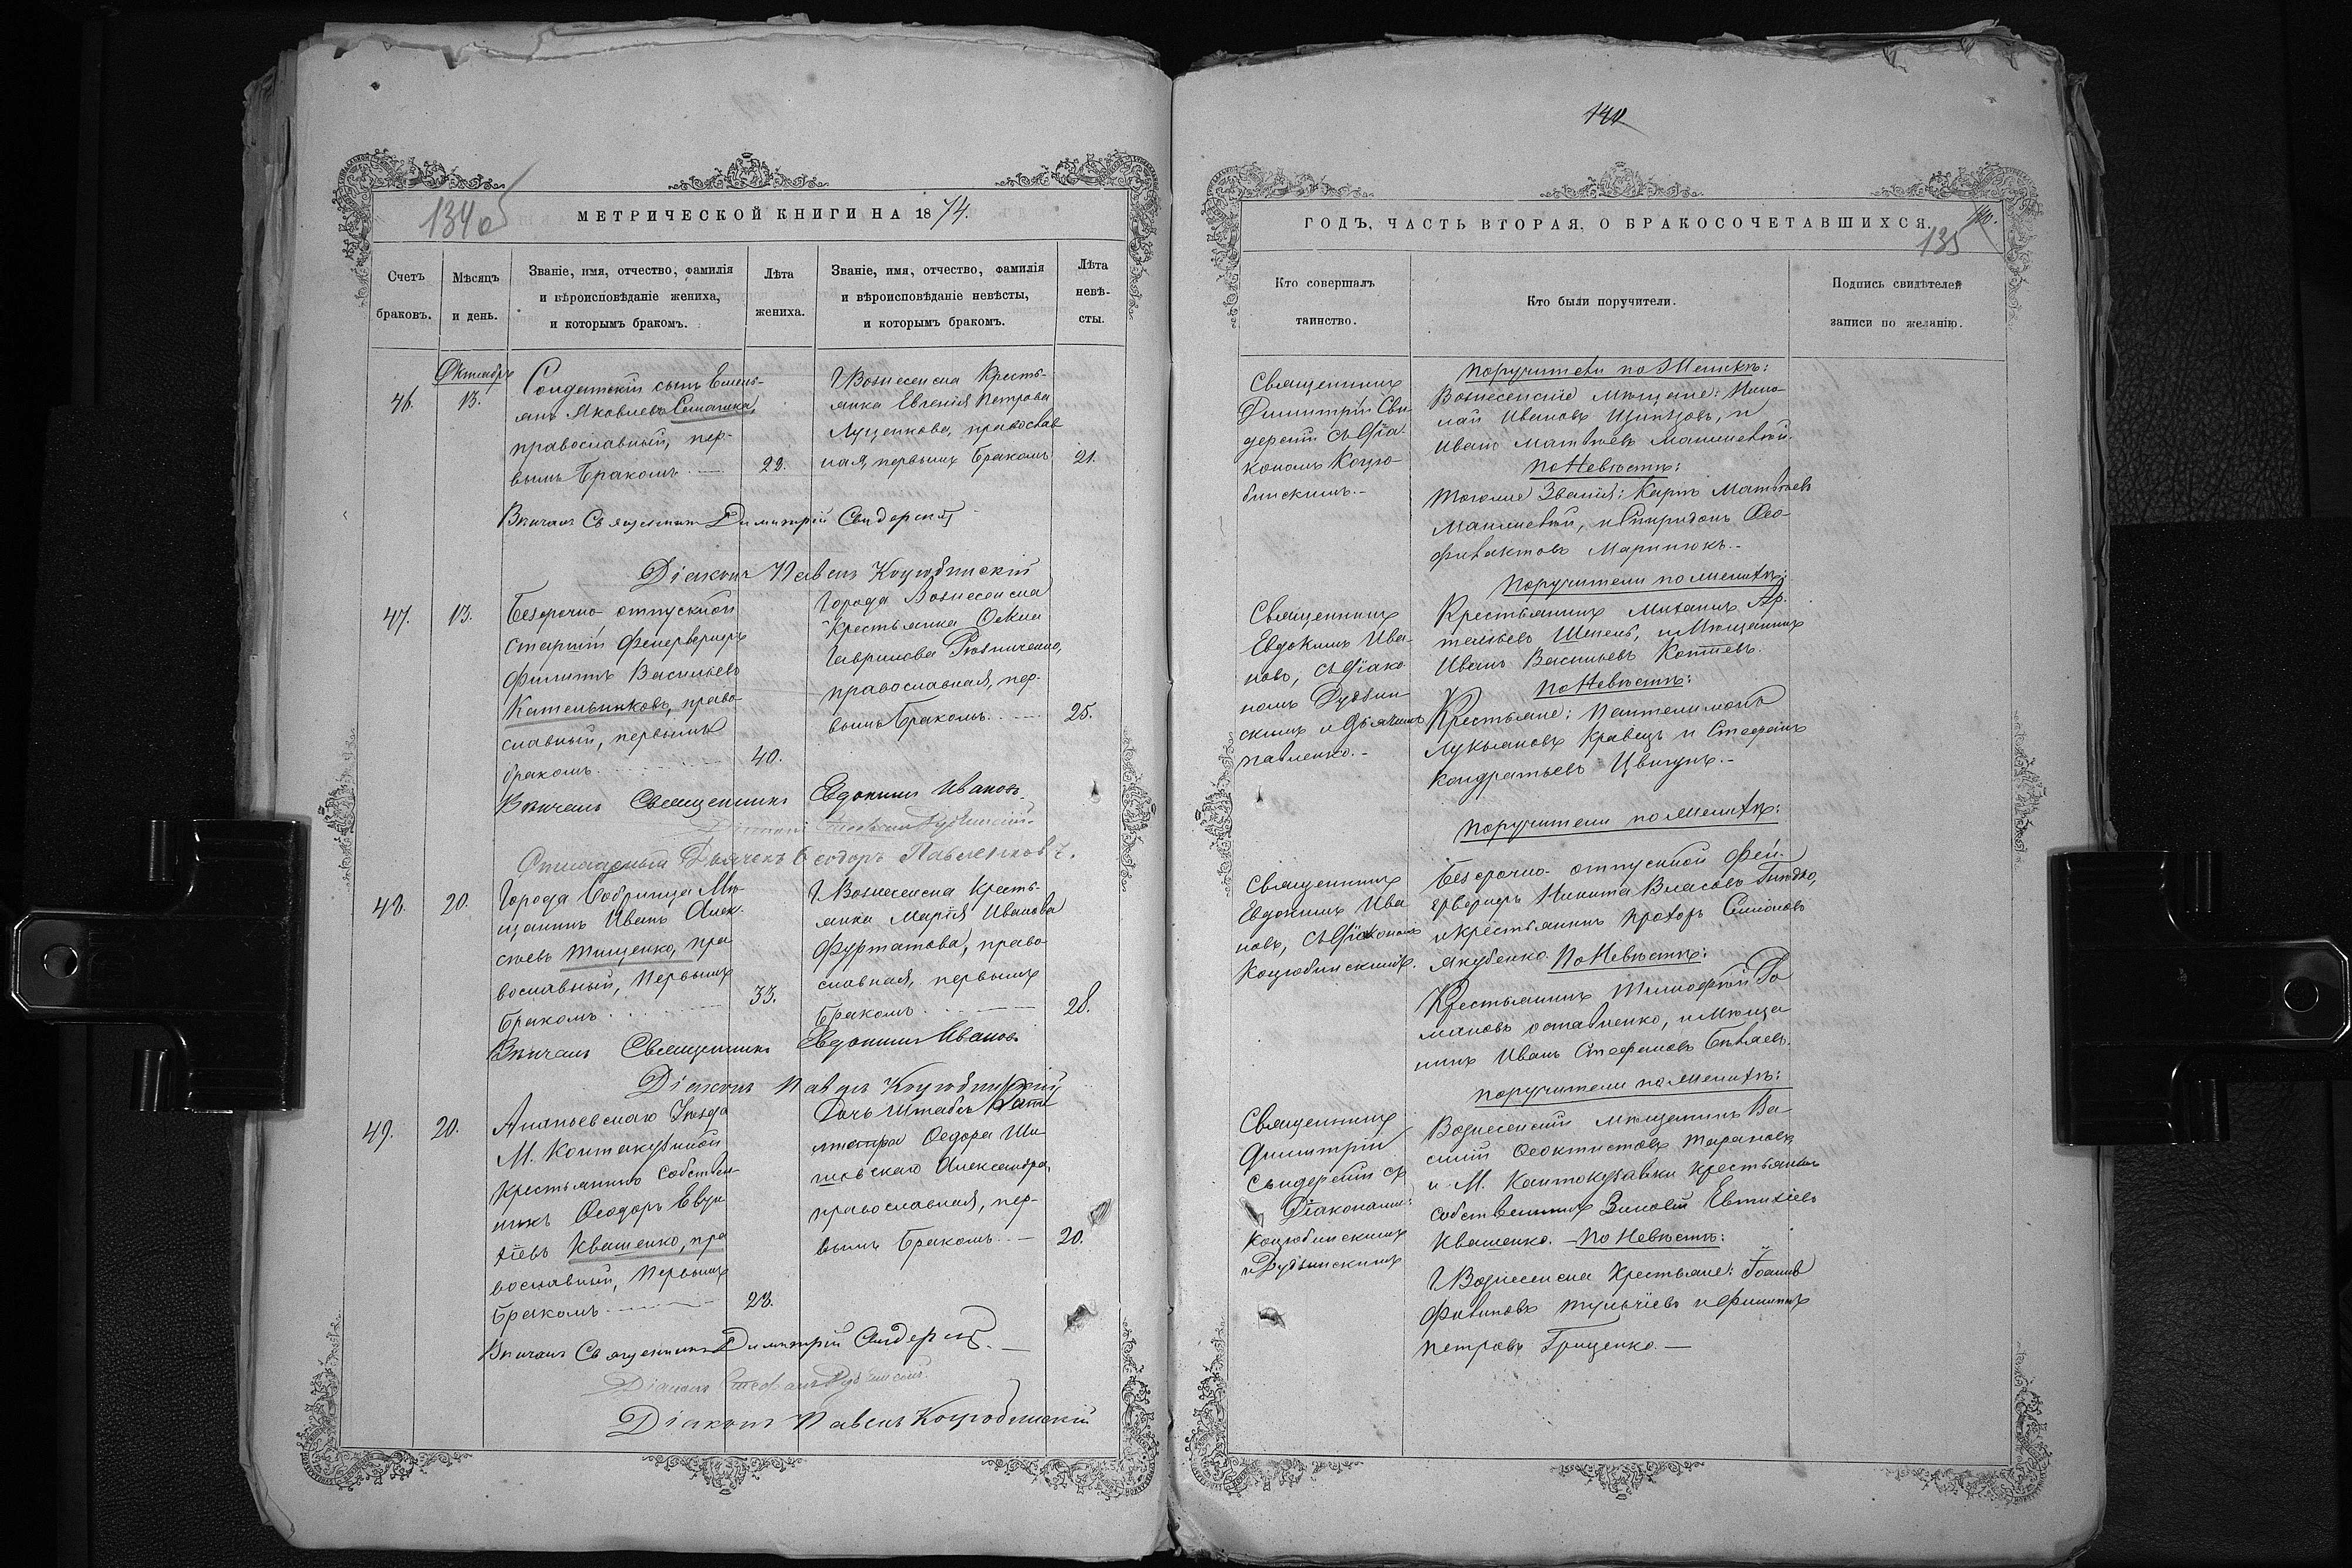 134 об
МЕТРИЧЕСКОЙ КНИГИ НА 1874.
Счетъ
браковъ.
Мѣсяцъ
и день.
Званіе, имя, отчество, фамилія
и вѣроисповѣданіе жениха,
и которымъ бракомъ.
Лѣта
жениха.
Званіе, имя, отчество, фамилія
и вѣроисповѣданіе невѣсты,
и которымъ бракомъ.
Лѣта
невѣ-
сты.
Октябрь
46.
13.
Солдатскій сынъ Емель-
янъ Яковлевъ Семашка,
православный, пер-
вымъ бракомъ. —
22.
Г Вознесенска Кресть-
янка Евгенія Петрова
Луценкова, православ
ная, первымъ бракомъ
21.
Вѣнчалъ Священникъ Димитрій Свидерскій
Діаконъ Павелъ Коцюбинскій
47.
13.
Безсрочно-отпускной
старшій Фейерверкеръ
Филиппъ Васильевъ
Кательниковъ, право-
славный, первымъ
бракомъ.
40.
Города Вознесенска
Крестьянка
Гаврилова
православная, пер-
вымъ бракомъ. —
25.
Вѣнчалъ Священникъ Евдокимъ Ивановъ.
Діаконъ Стефанъ
Дьячекъ Ѳеодоръ
48.
20.
Города Бобринца Мѣ-
щанинъ Иванъ Алек-
сѣевъ Тищенко, пра
вославный, первымъ
бракомъ.
33.
Г Вознесенска Кресть-
янка Марія Иванова
Фуртатова, право
славная, первымъ
бракомъ. —
28.
Вѣнчалъ Священникъ Евдокимъ Ивановъ
Діаконъ Павелъ Коцюбинскій
49.
20.
Ананьевскаго Уѣзда
М. Контакузиной
Крестьянинъ собствен-
никъ Ѳеодоръ Евти
хіевъ Квашенко, пра
вославный, первымъ
бракомъ.
23.
Дочь Штабсъ Капи
Ѳедора Ши
Александра,
православная, пер-
вымъ бракомъ. —
20.
Вѣнчалъ Священникъ Димитрій Свидерскій. —
Діаконъ Стефанъ
Діаконъ Павелъ Коцюбинскій
140
ГОДЪ, ЧАСТЬ ВТОРАЯ, О БРАКОСОЧЕТАВШИХСЯ.
140.
135
Кто совершалъ
таинство.
Кто были поручители.
Подпись свидѣтелей
записи по желанію.
Священникъ
Димитрій Сви-
дерскій съ Діа-
кономъ Коцю-
бинскимъ. —
Поручители по Женихѣ:
Вознесенскіе Мѣщане: Нико-
лай Ивановъ и
Иванъ Матвѣевъ
по Невѣстѣ:
Того же Званія: Карпъ Матвѣевъ
и Спиридонъ Ѳео-
филактовъ Маринюкъ. —
Священникъ
Евдокимъ Ива-
новъ, съ Діако-
номъ
скимъ и Дьячкомъ
Павленко. —
Поручители по женихѣ:
Крестьянинъ Михаилъ
Шепель, и Мѣщанинъ
Иванъ Васильевъ Коптевъ.
по Невѣстѣ:
Крестьяне: Пантелимонъ
Лукьяновъ Кравецъ и Стефанъ
Кондратьевъ Цвигунъ. —
Священникъ
Евдокимъ Ива
новъ, съ Діакономъ
Коцюбинскимъ.
Поручители по Женихѣ:
Безсрочно-отпускной Фей-
ерверкеръ Никита Власовъ
и крестьянинъ Прохоръ Симоновъ
Якубенко. По Невѣстѣ:
Крестьянинъ Тимофей Ро
мановъ Остапенко, и Мѣща
нинъ Иванъ Стефановъ Бѣляевъ.
Священникъ
Димитрій
Свидерскій съ
Діаконами:
Коцюбинскимъ
и
Поручители по Женихѣ:
Вознесенскій мѣщанинъ Ва-
силій Ѳеоктистовъ
и М. Кантокузавки Крестьянинъ
собственникъ Зиновій Евтихіевъ
Квашенко. — По Невѣстѣ:
Г Вознесенска Крестьяне: Іоаннъ
Филиповъ и Филиппъ
Петровъ Гриценко. —